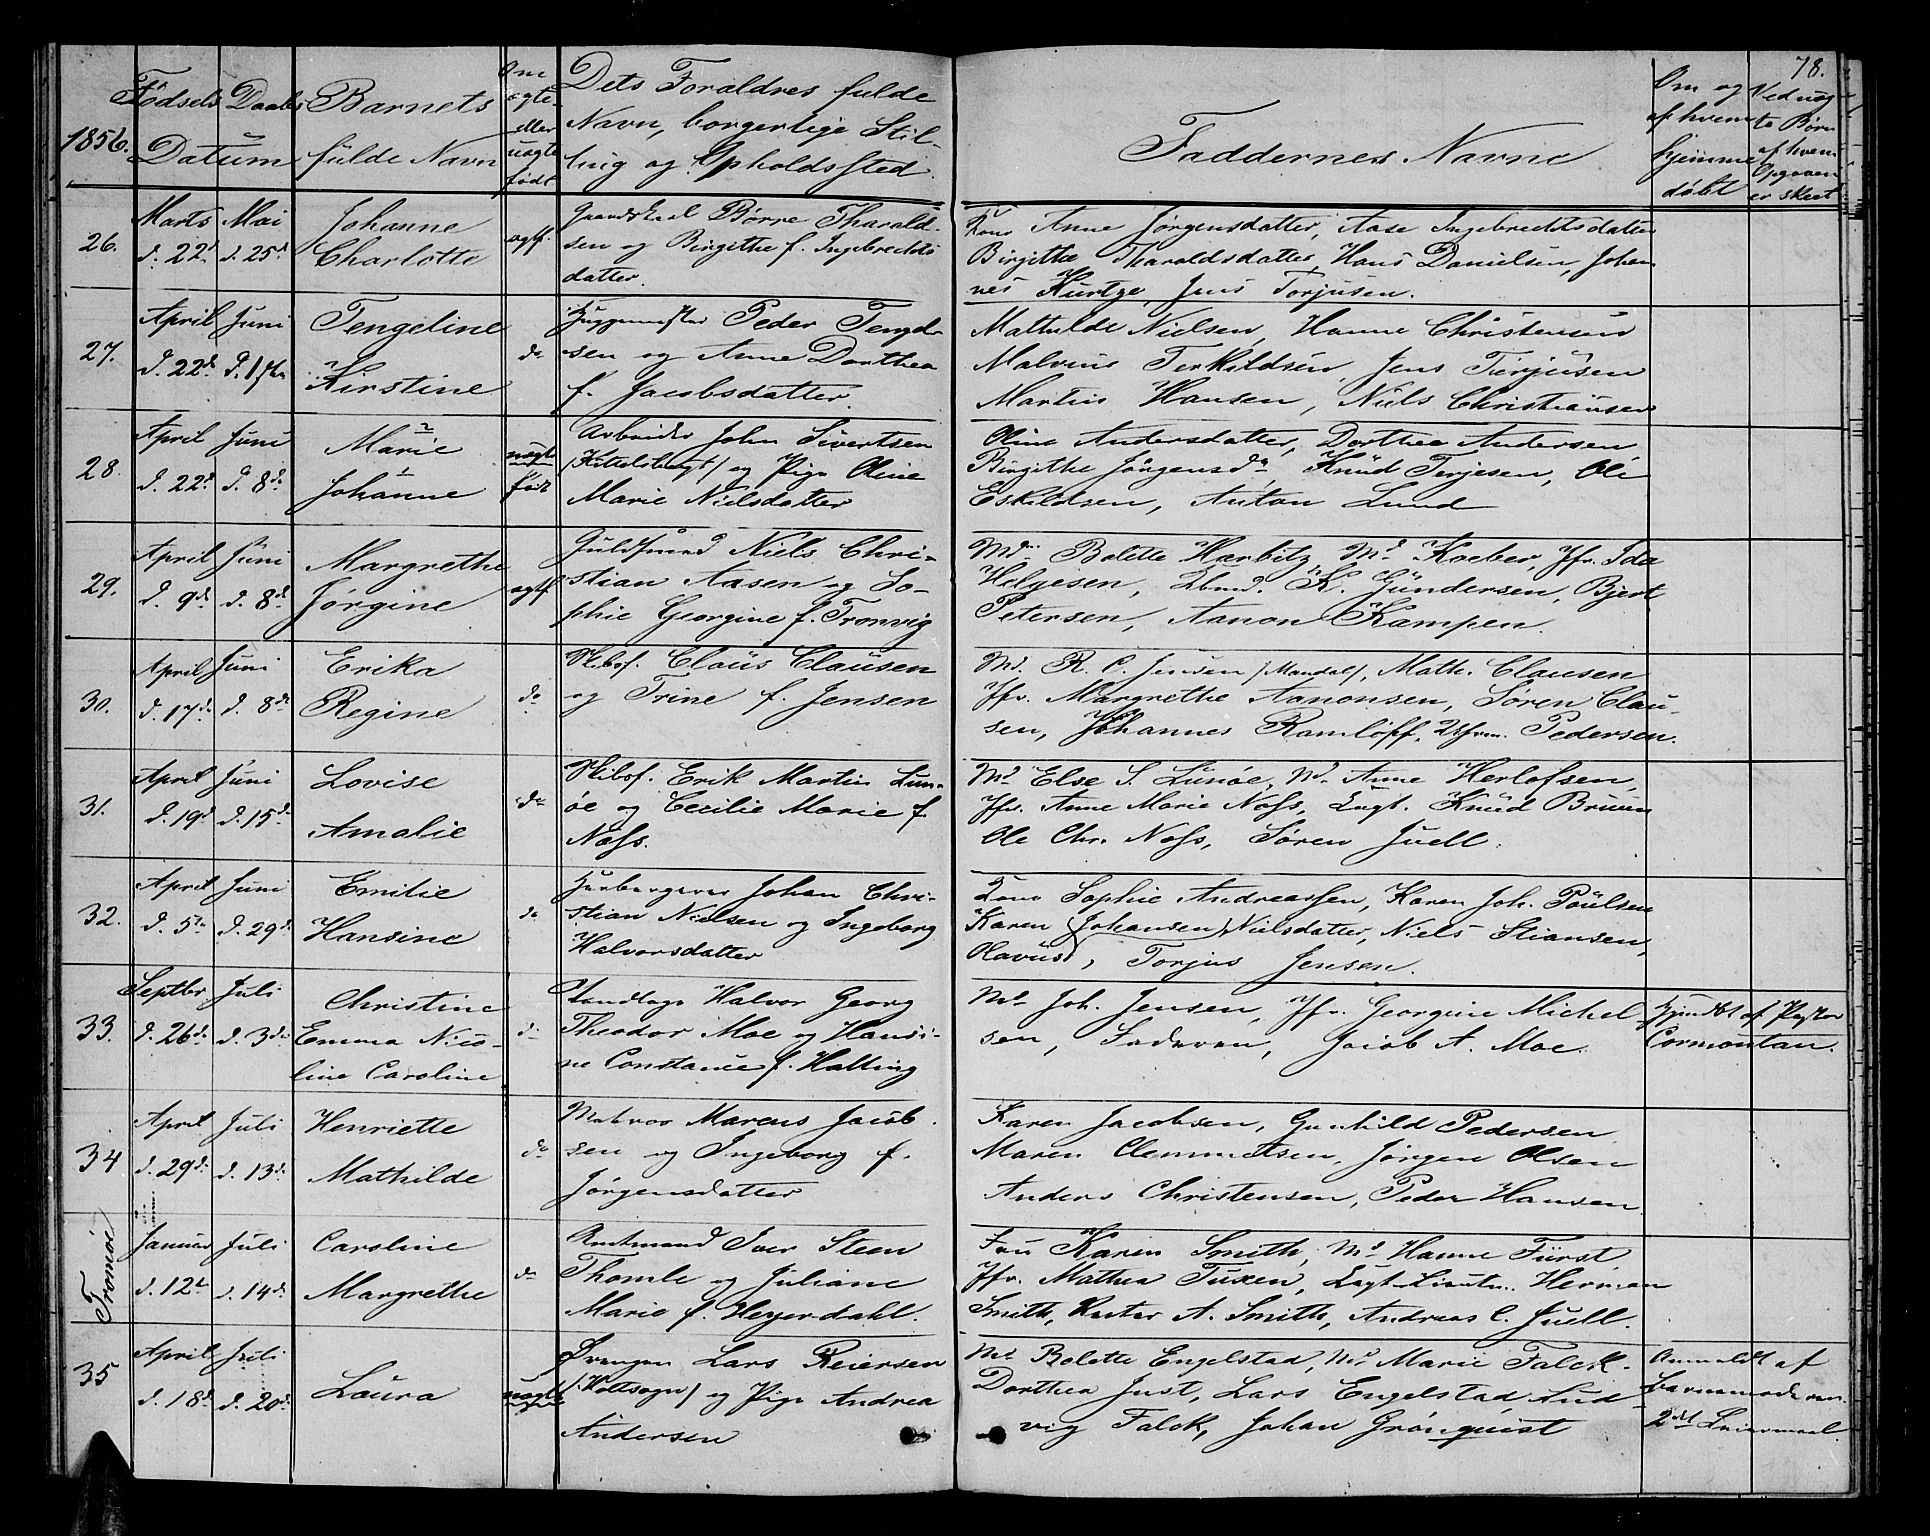 78.
1856.
Fødsels Daabs
Datum
Barnets
fulde Navn
Om
ægte
eller
uægte
født
Dets Forældres fulde
Navn, borgerlige Stil-
ling og Opholdssted.
Faddernes Navne
Om og
af hvem
hjemme
døbt
Ved uæg-
te Børn
af hvem
Opgaven
er skeet
26.
Marts Mai
d. 22d d. 25d
Johanne
Charlotte
ægtf.
Børre Tharald-
sen og Birgithe f. Ingebrechts
datter.
Kone Anne Jørgensdatter, Aase Ingebrechtsdatter
Birgithe Tharaldsdatter, Hans Danielsen, Johan
nes Kurtze, Jens Torjusen.
27.
April Juni
d. 22d d. 1ste
Tengeline
Kirstine
do
Peder Tengel-
sen og Anne Dorthea
f. Jacobsdatter.
Mathilde Nielsen, Hanne Christensen
Malvine Terkildsen, Jens Terjusen
Martin Hansen, Niels Christiansen
28.
April Juni
d. 22d d. 8de
Marie
Johanne
uægte
født
Arbeider John Sivertsen
/Kittelsbugt/ og Pige Oline
Marie Nielsdatter
Oline Andersdatter, Dorthea Andersen
Birgithe Jørgensdr Knud Terjesen, Ole
Eskildsen, Anton Lund
29.
April Juni
d. 9de d. 8de
Margrethe
Jørgine
ægtf
Guldsmed Niels Chri-
stian Aasen og So-
phie Georgine f. Tronvig
Md. Bolette Herbitz, Md Koeber, Jfr. Ida
Helgesen, K. Gundersen, Bjert
Petersen, Aanon Kampen.
30.
April Juni
d. 17de d. 8de
Erika
Regine
do
Skibsf. Claus Clausen
og Trine f. Jensen
Md. R. C. Jensen /Mandal/, Math. Clausen
Jfr. Margrethe Aanonsen, Søren Clau-
sen, Johannes Ramløff, Pedersen.
31.
April Juni
d. 19de d. 15de
Lovise
Amalie
do
Skibsf. Erik Martin Lun-
øe og Cecilie Marie f
Næss.
Md Else S. Lunøe, Md. Anne Herlofsen,
Jfr. Anne Marie Næss, Knud Bruun
Ole Chr. Næss, Søren Juell.
32.
April Juni
d. 5te d. 29de
Emilie
Hansine
do
Johan Chri-
stian Nielsen og Ingeborg
Halvorsdatter
Kone Sophie Andreassen, Karen Joh. Poulsen
Karen (Johansen) Nielsdatter, Niels Stiansen,
Olavus, Torjus Jensen.
33.
Septbr Juli
d. 26de d. 3die
Christine
Emma Nico-
line Caroline
do
Tandlæge Halvor Georg
Theodor Moe og Hansi-
ne Constance f. Halling
Md. Joh. Jensen, Jfr. Georgine Michel
sen, Jacob A. Moe.
Hjemdøbt af Pastor
Cormontan.
34
April Juli
d. 29de d. 13de
Henriette
Mathilde
do
Matros Marcus Jacob-
sen og Ingeborg f.
Jørgensdatter
Karen Jacobsen, Gunhild Pedersen
Maren Clemmetsen, Jørgen Olsen
Anders Christensen, Peder Hansen
Tromøe
Januar Juli
d. 12te d. 14de
Caroline
Margrethe
do
Amtmand Iver Steen
Thomle og Juliane
Marie f. Heyerdahl.
Fru Karen Smith, Md Hanne Fürst,
Jfr. Mathea Tuxen, Herman
Smith, A. Smith, Andreas C. Juell.
35
April Juli
d. 18de d. 20de
Laura
uægte
Lars Reiersen
/Holtsogn/ og Pige Andrea
Andersen
Md Bolette Engelstad, Md Marie Falck.
Dorthea Just, Lars Engelstad, Lud-
vig Falck, Johan Grönquist
Anmeldt af
Barnemoderen
2det Leiermaal.